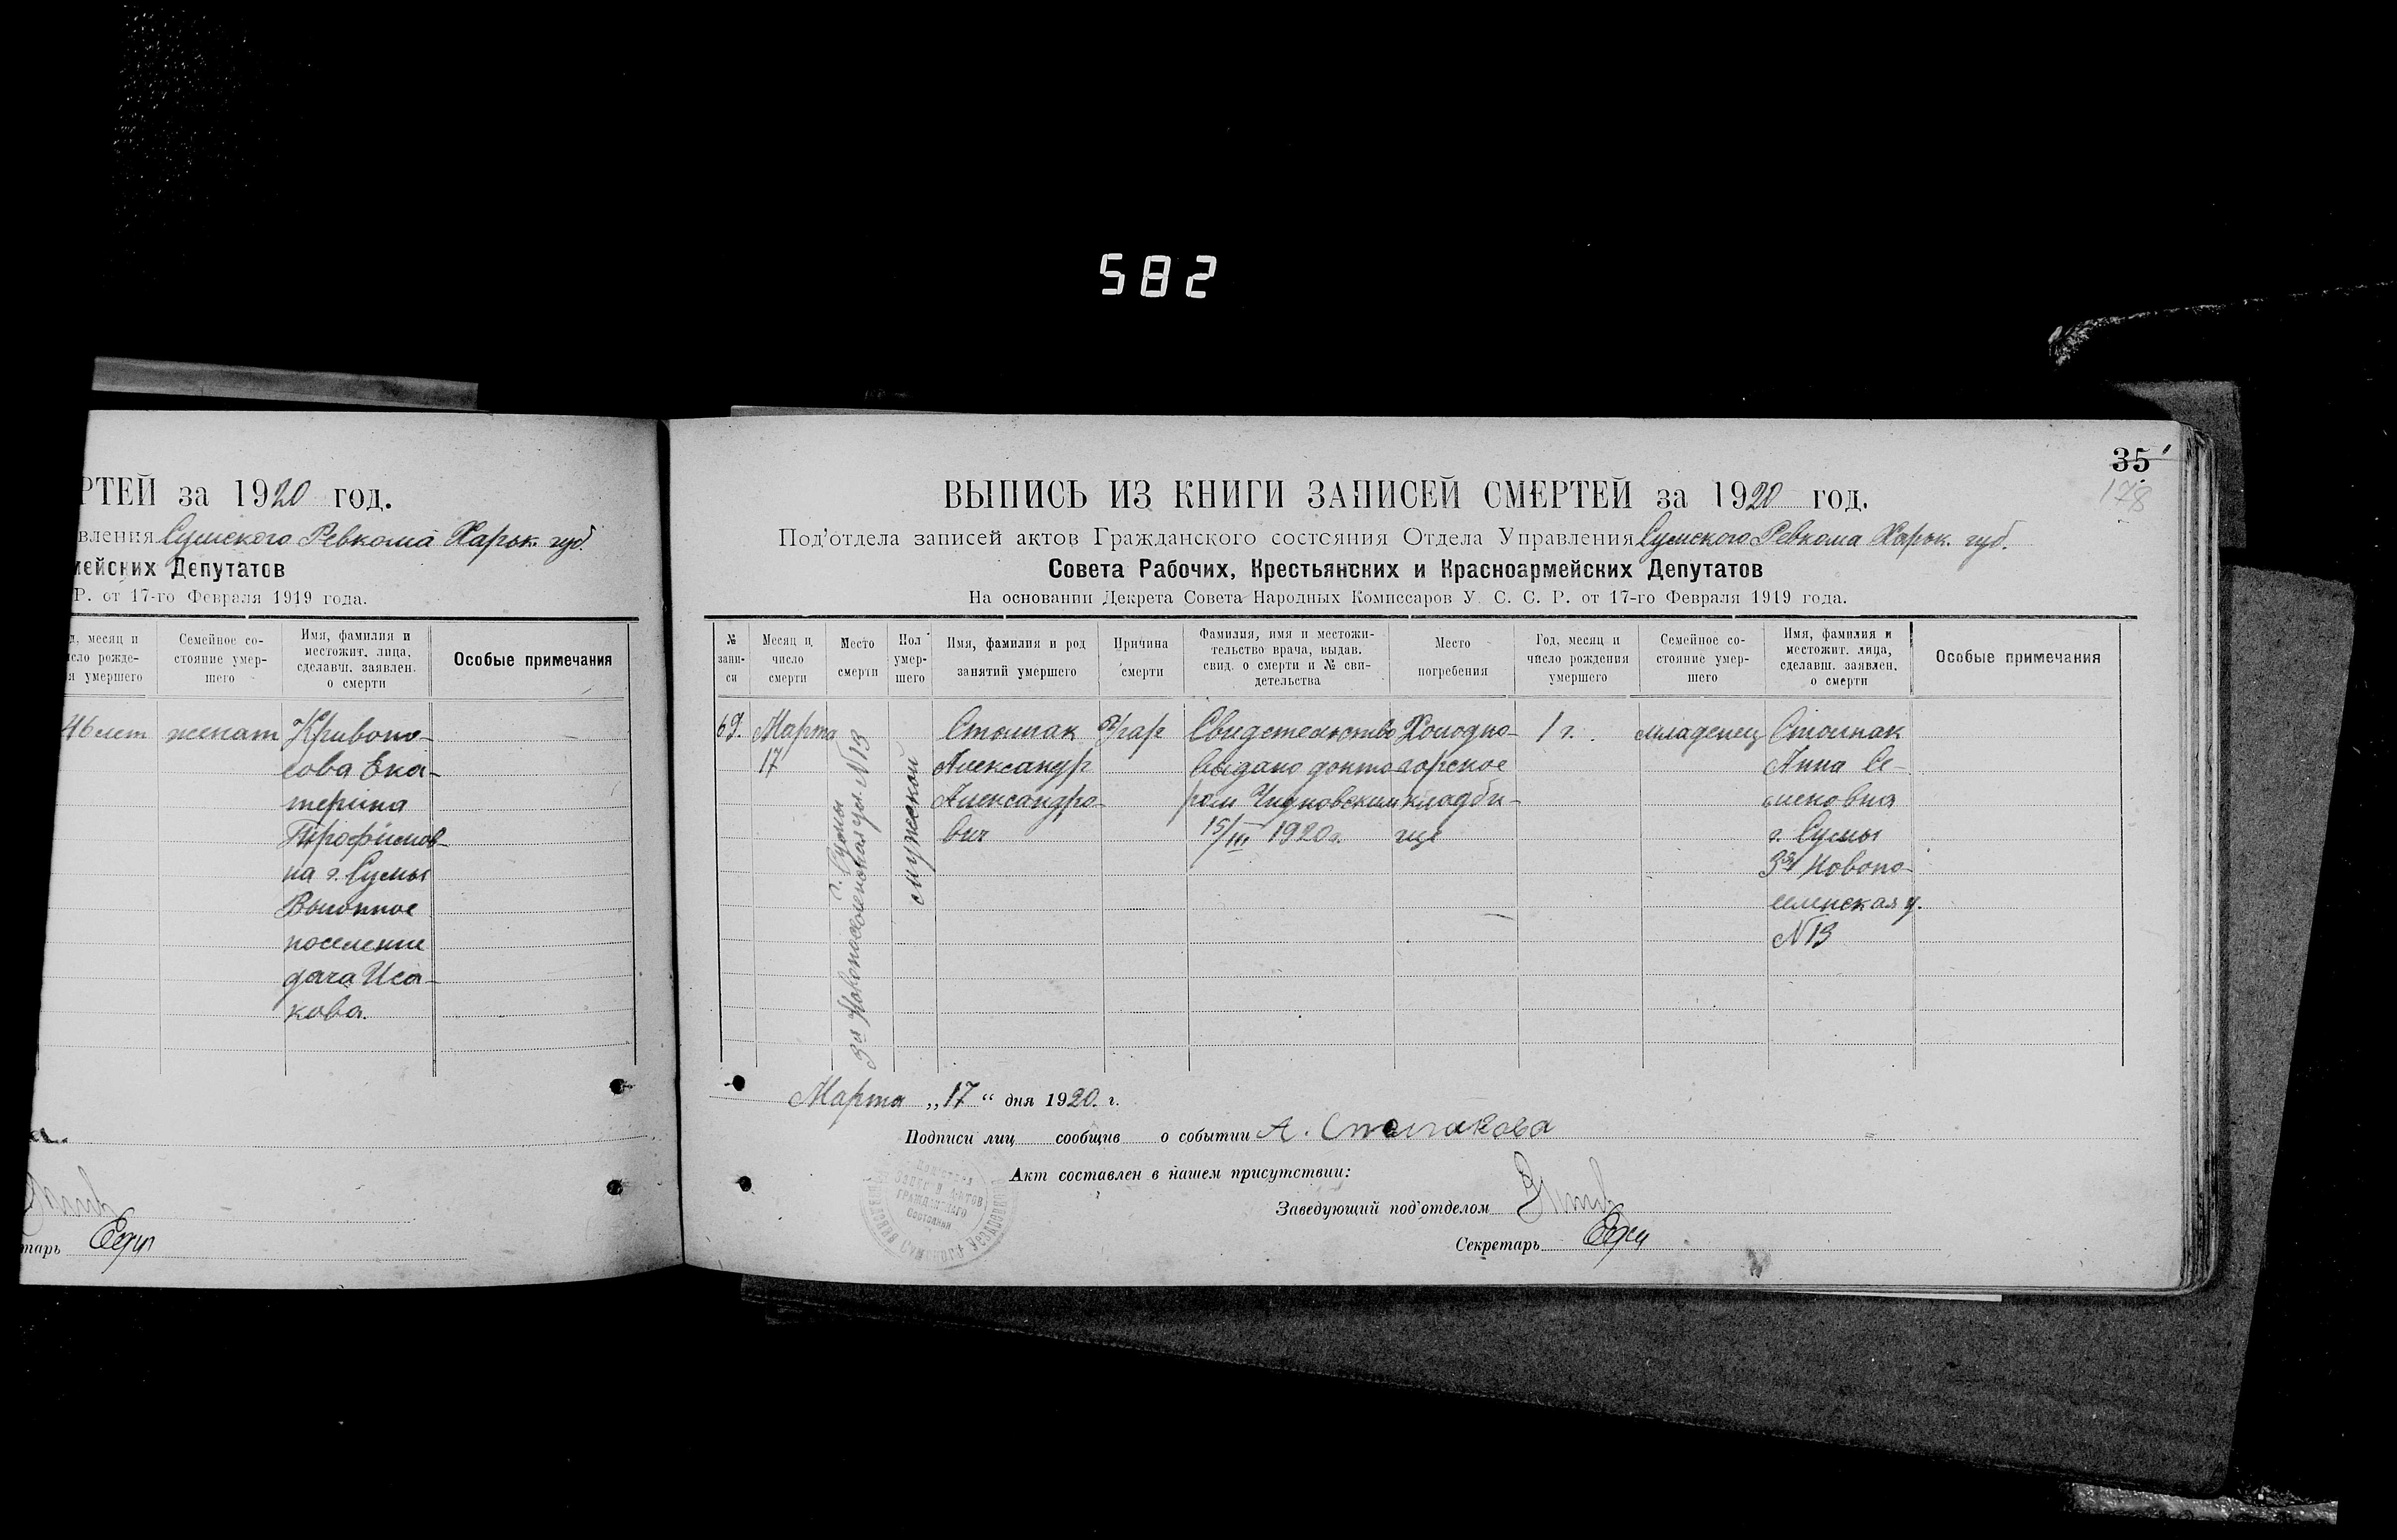 582
РТЕЙ за 1920 год.
вления Сумского Ревкома Харьк. губ.
мейских Депутатов
Р. от 17-го Февраля 1919 года.
д, месяц и
исло рожде-
я умершего
Семейное со-
стояние умер-
шего
Имя, фамилия и
местожит. лица,
сделавш. заявлен.
о смерти
Особые примечания
46 лет
женат
Кривоно-
сова Ека-
терина
Трофимов-
на г. Сумы
Выгонное
поселение
дача Иса-
кова.
тарь
35
178
ВЫПИСЬ ИЗ КНИГИ ЗАПИСЕЙ СМЕРТЕЙ за 1920 год.
Под'отдела записей актов Гражданского состояния Отдела Управления Сумского Ревкома Харьк. губ.
Совета Рабочих, Крестьянских и Красноармейских Депутатов
На основании Декрета Совета Народных Комиссаров У. С. С. Р. от 17-го Февраля 1919 года.
№
запи-
си
Месяц и
число
смерти
Место
смерти
Пол
умер-
шего
Имя, фамилия и род
занятий умершего
Причина
смерти
Фамилия, имя и местожи-
тельство врача, выдав.
свид. о смерти и № сви-
детельства
Место
погребения
Год, месяц и
число рождения
умершего
Семейное со-
стояние умер-
шего
Имя, фамилия и
местожит. лица,
сделавш. заявлен.
о смерти
Особые примечания
69.
Марта
17
г. Сумы
3ая Новопоселенская ул. N 13
мужской
Столпак
Александр
Александро-
вич
Угар
Свидетельство
выдано докто
ром Чудновским
15/III 1920 г.
Холодно-
горское
кладби-
ще
1 г.
младенец
Столпак
Анна Се-
меновна
г. Сумы
3ая Новопо-
селенская у.
N 13
Марта „17“ дня 1920. г.
Подписи лиц сообщив о событии А. Столпакова
Акт составлен в нашем присутствии:
Заведующий под'отделом
Секретарь
Записи Актов
Гражданского
Состояния